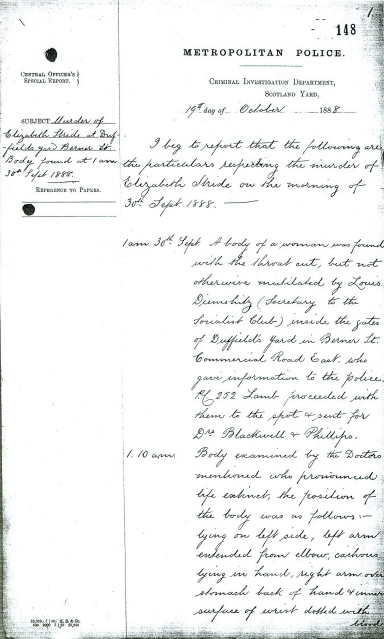 1
148
METROPOLITAN POLICE.
CENTRAL OFFICER'S
SPECIAL REPORT.
CRIMINAL INVESTIGATION DEPARTMENT,
SCOTLAND YARD,
19th day of October 1888
SUBJECT Murder of
Elizabeth Stride at Duf-
-fields yard Berner St.
Body found at 1 am
30th Sept 1888.
REFERENCE TO PAPERS.
I beg to report that the following are
the particulars respecting the murder of
Elizabeth Stride on the morning of
30th Sept. 1888. —
1 am 30th Sept. A body of a woman was found
with the throat cut, but not
otherwise mutilated by Louis
Diemshitz (Secretary to the
Socialist Club) inside the gates
of Duffield's Yard in Berner St.
Commercial Road East. who
gave information to the police.
P.C. 252 Lamb proceeded with
them to the spot & sent for
Drs. Blackwell & Phillips.
1.10 am. Body examined by the Doctors
mentioned who pronounced
life extinct, the position of
the body was as follows:–
lying on left side, left arm
extended from elbow, cachous
lying in hand, right arm over
stomach back of hand & inner
surface of wrist dotted with
blood